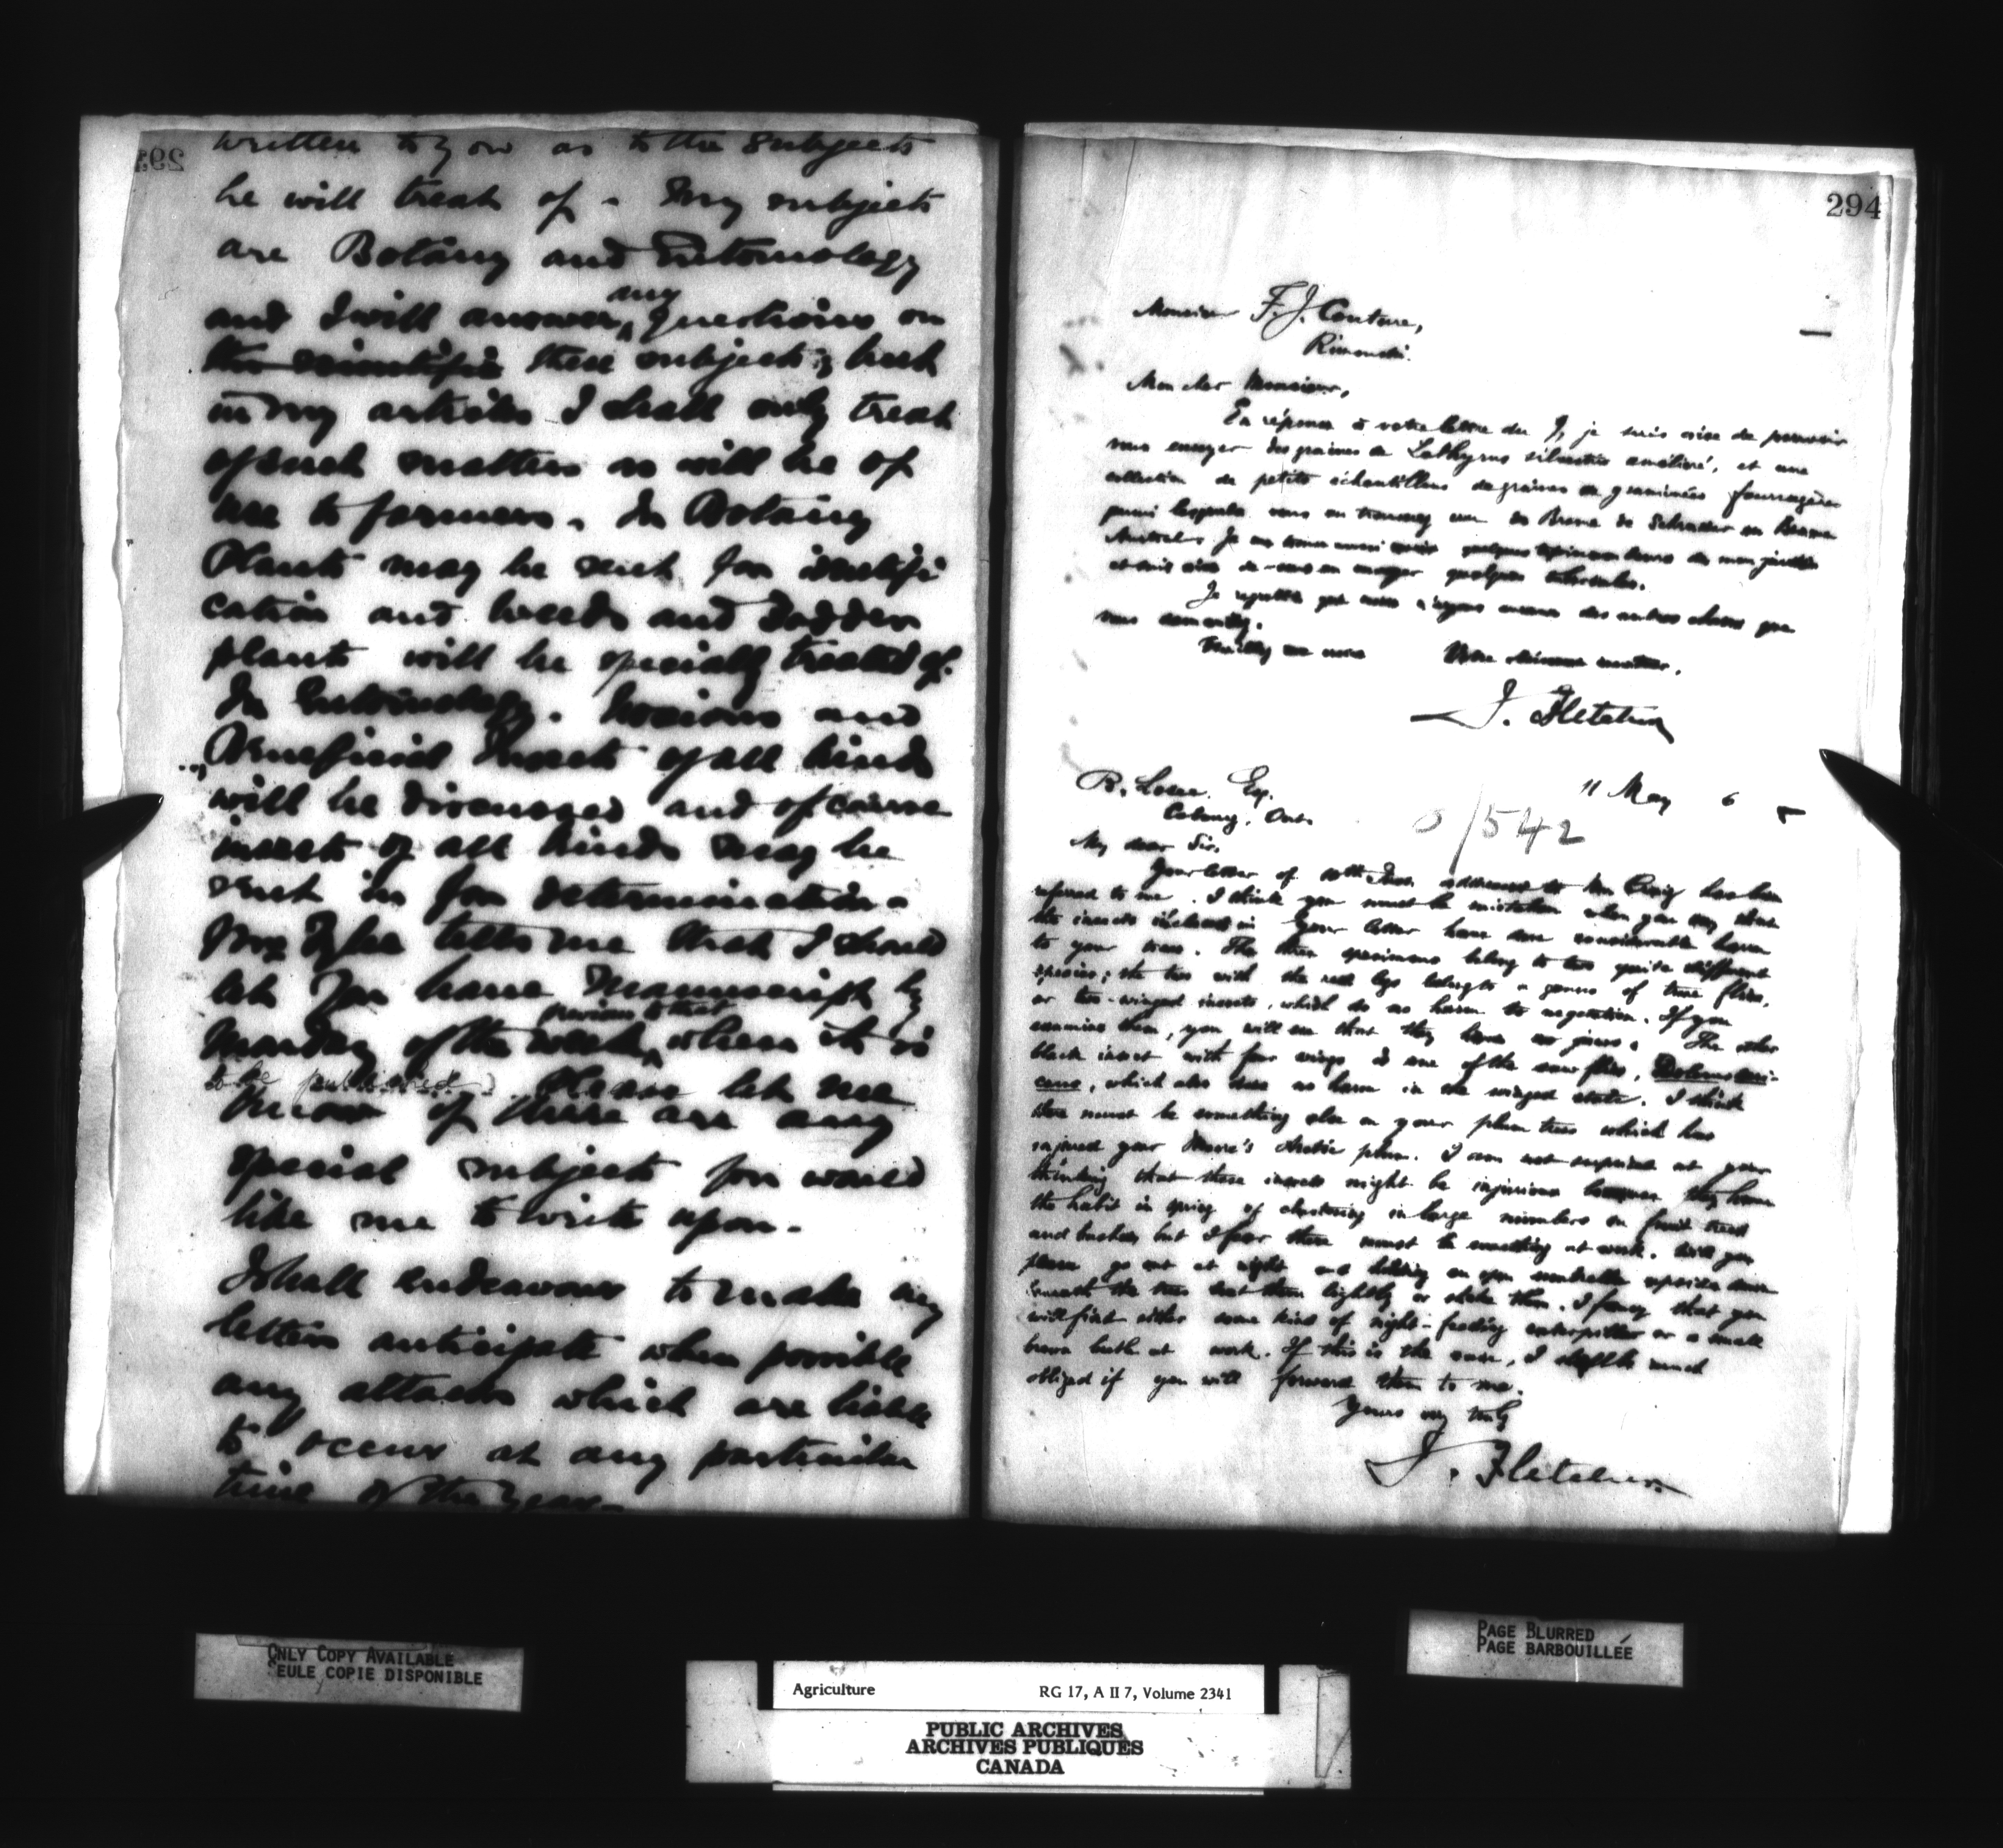 293
written to you as to the subjects
he will treat of. My subjects
are Botany and Entomology
and I will answer any questions on
these subjects; but
in my articles I shall only treat
of such matters as will be of
use to farmers. In Botany
Plants may be sent for identifi
cation and weeds and fodder
plants will be specially treated of.
In Entomology. Noxious and
Beneficial Insects of all kinds
will be discussed and of course
insects of all kinds may be
sent in for determination.
tells me that I should
let you have Manuscript by
Monday of the week previous to that when it is
to be published. Please let me
know if there are any
special subjects you would
like me to write upon.
I shall endeavour to make my
letters anticipate when possible
any attacks which are liable
to occur at any particular
time of the year.
294
Monsieur F. J. Couture,
Rimouski.
Mon cher Monsieur,
En réponse à votre lettre du 9, je suis aise de pouvoir
vous envoyer des graines de Lathyrus silvestris amélioré, et une
collection de petits échantillons de graines de graminées fourragères
parmi lesquelles vous en trouverez une de Brome de Schrader
quelques de mon jardin
et suis aise de vous en envoyer quelques
Je regrette que nous n'ayons aucune des autres choses que
vous demandez.
Veuillez me croire Votre serviteur,
J. Fletcher
11 May 6
R. Esq.
Ont.
0/542
My dear Sir,
Your letter of 10th Inst. addressed to Mr Craig has been
referred to me. I think you must be mistaken when you say that
the insects enclosed in your letter have done considerable harm
to your trees. The three specimens belong to two quite different
species; the two with the red legs belong to a genus of true flies,
or two-winged insects, which do no harm to vegetation. If you
examine them, you will see that they have no jaws. The other
black insect with four wings is one of the saw flies,
which also does no harm in the winged state. I think
there must be something else on your plum trees which has
injured your Moore's Arctic plum. I am not surprised at your
thinking that these insects might be injurious because they have
the habit in spring of clustering in large numbers on fruit trees
and bushes but I fear there must be something at work. Will you
please go out at night and holding an open umbrella upside down
beneath the trees beat them lightly or shake them. I fancy that you
will find either some kind of night-feeding caterpillar or a small
brown beetle at work. If this is the case, I shall be much
obliged if you will forward them to me.
Yours very truly
J. Fletcher
ONLY COPY AVAILABLE
SEULE COPIE DISPONIBLE
PAGE BLURRED
PAGE BARBOUILLÉE
Agriculture RG 17, A II 7, Volume 2341
PUBLIC ARCHIVES
ARCHIVES PUBLIQUES
CANADA